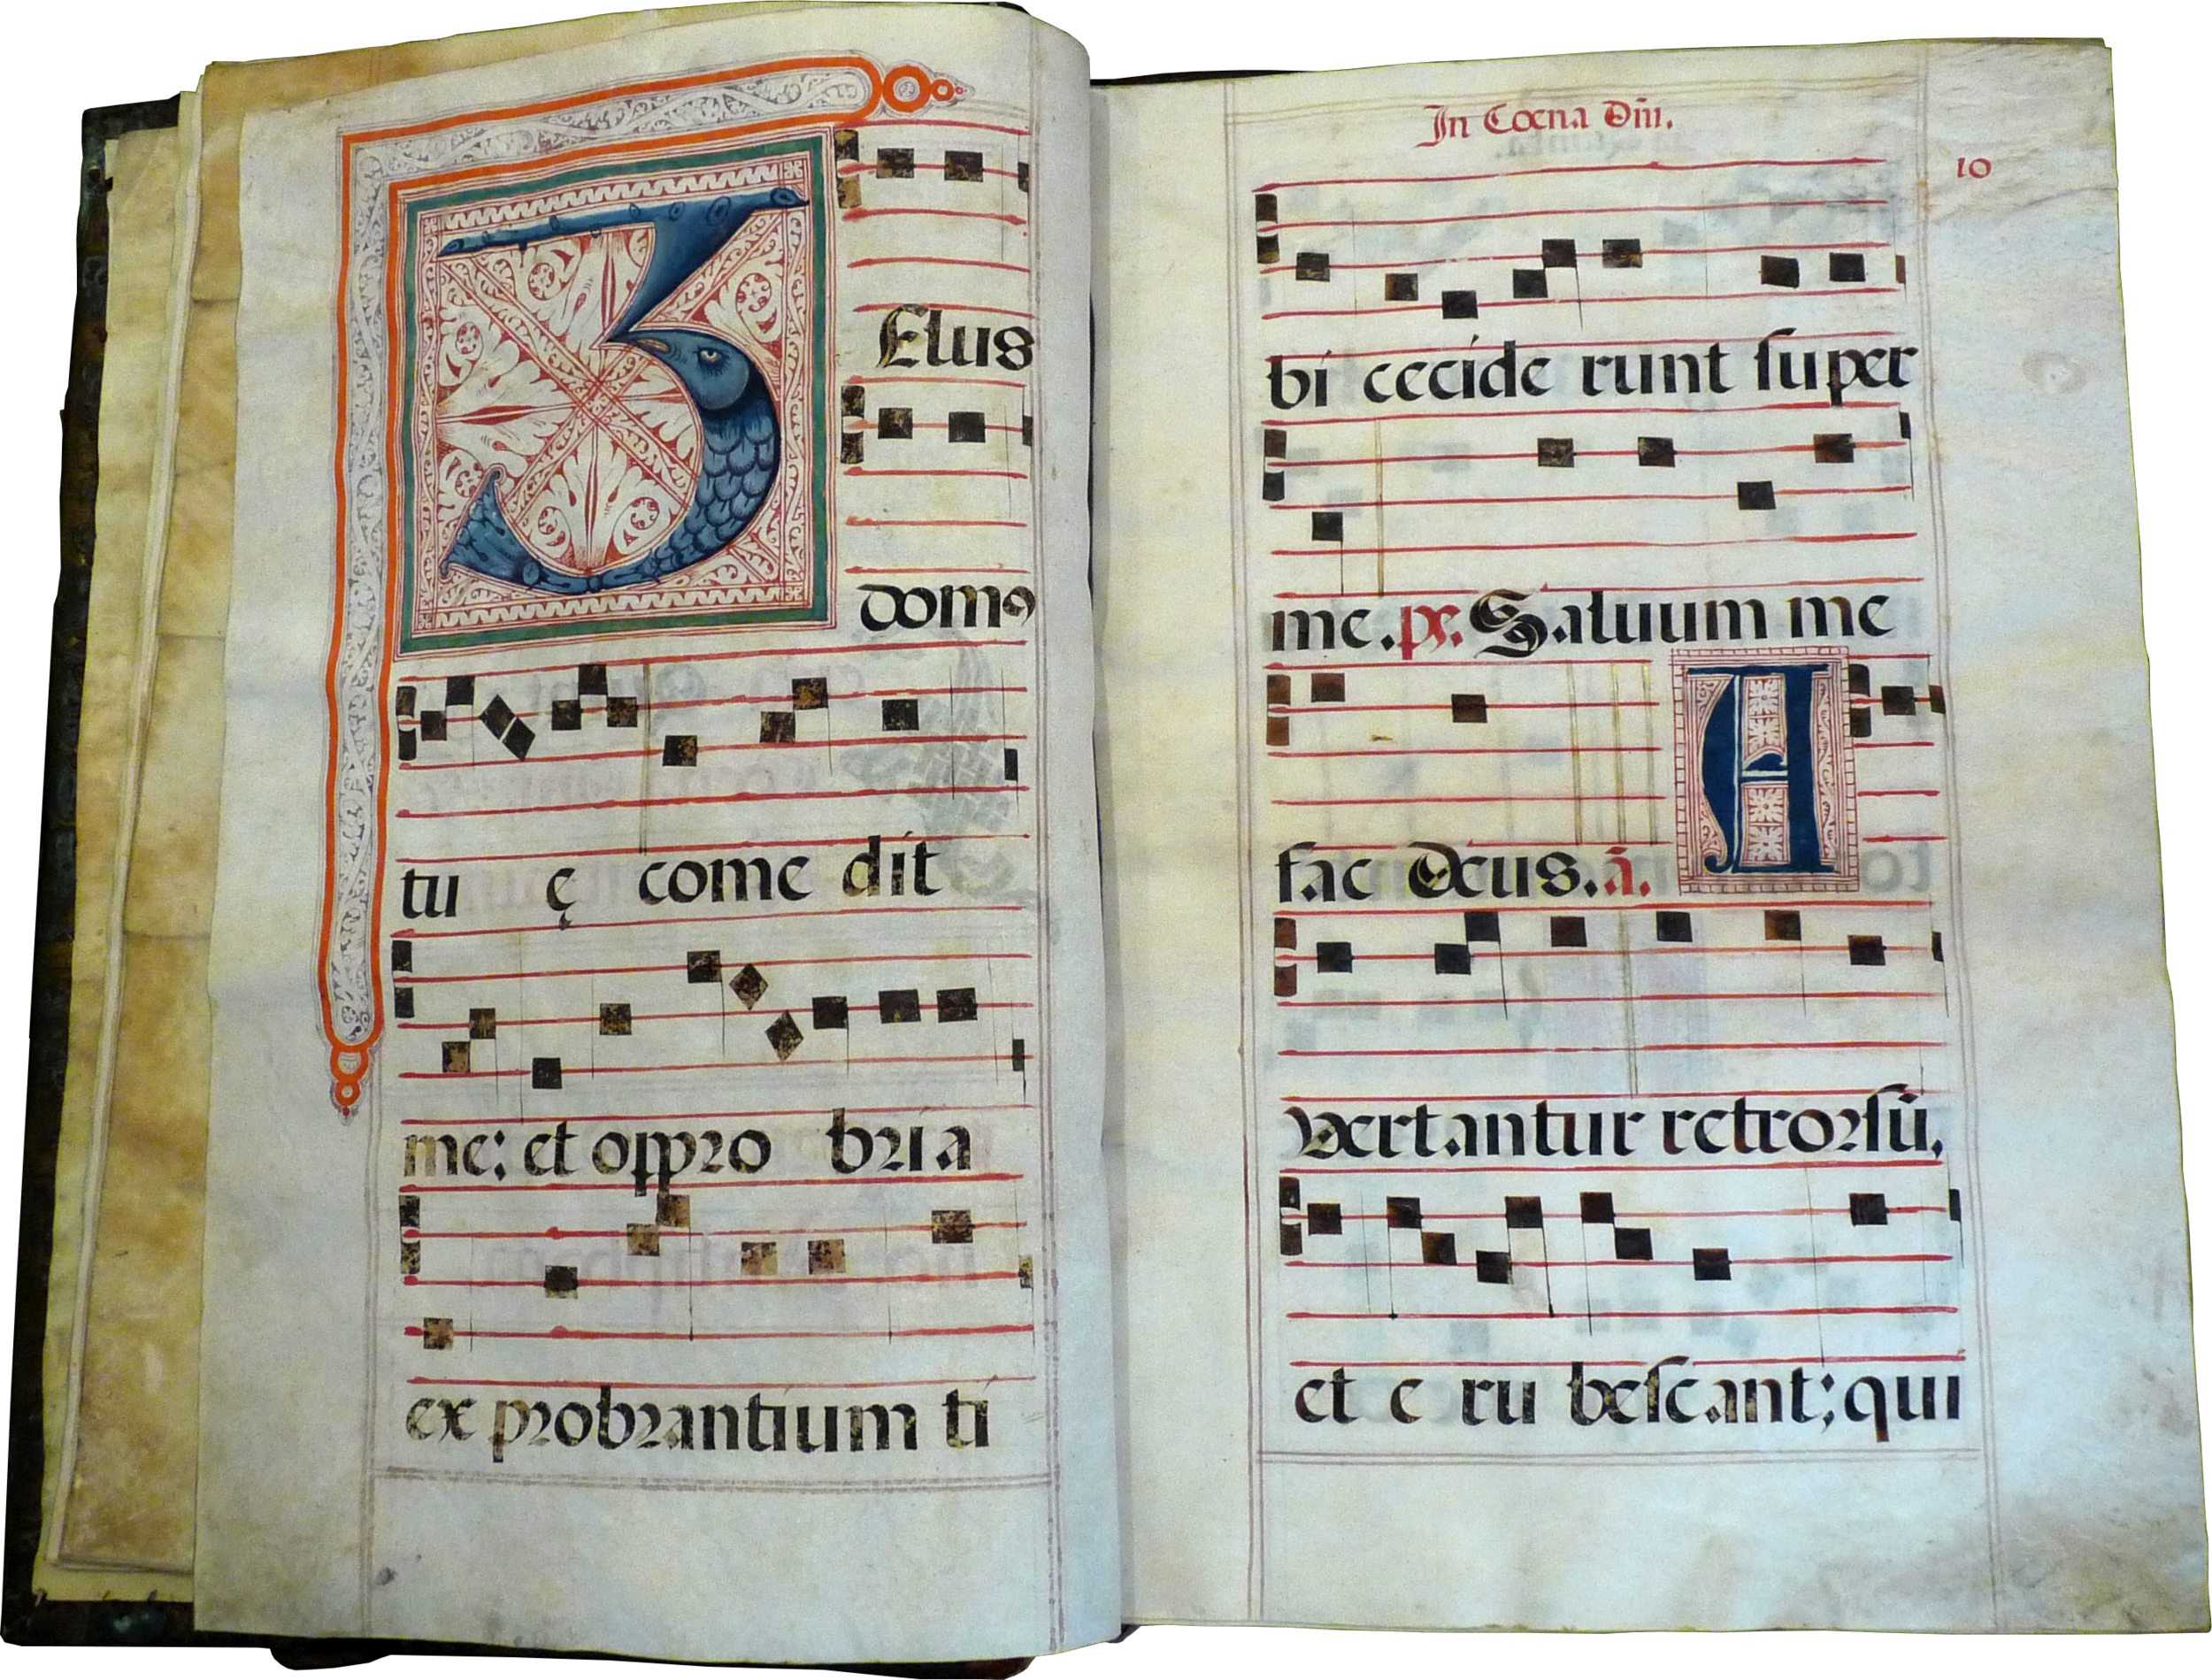 ZElus
domꝰ
tu ę come dit
me: et oppro bria
ex probrantium ti
In Coena Dñi.
10
bi cecide runt ſuper
me. ps. Saluum me
fac Deus. ã. A
vertantur retrorſũ,
et e ru beſcant; qui